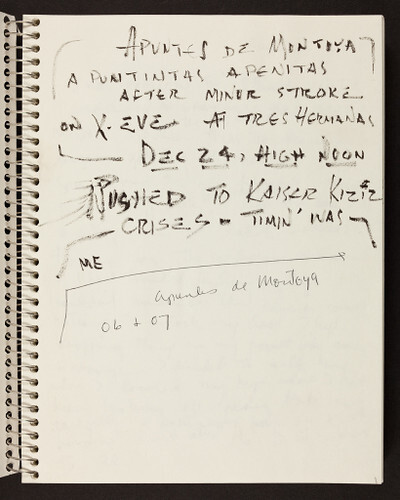 APUNTES DE MONTOYA
A PUNTINTAS APENITAS
AFTER MINOR STROKE
ON X-EVE AT TRES HERMANAS
DEC 24, HIGH NOON
RUSHED TO KAISER KIZIZ
CRISES - TIMIN' WAS
ME
apuntes de Montoya
06 & 07